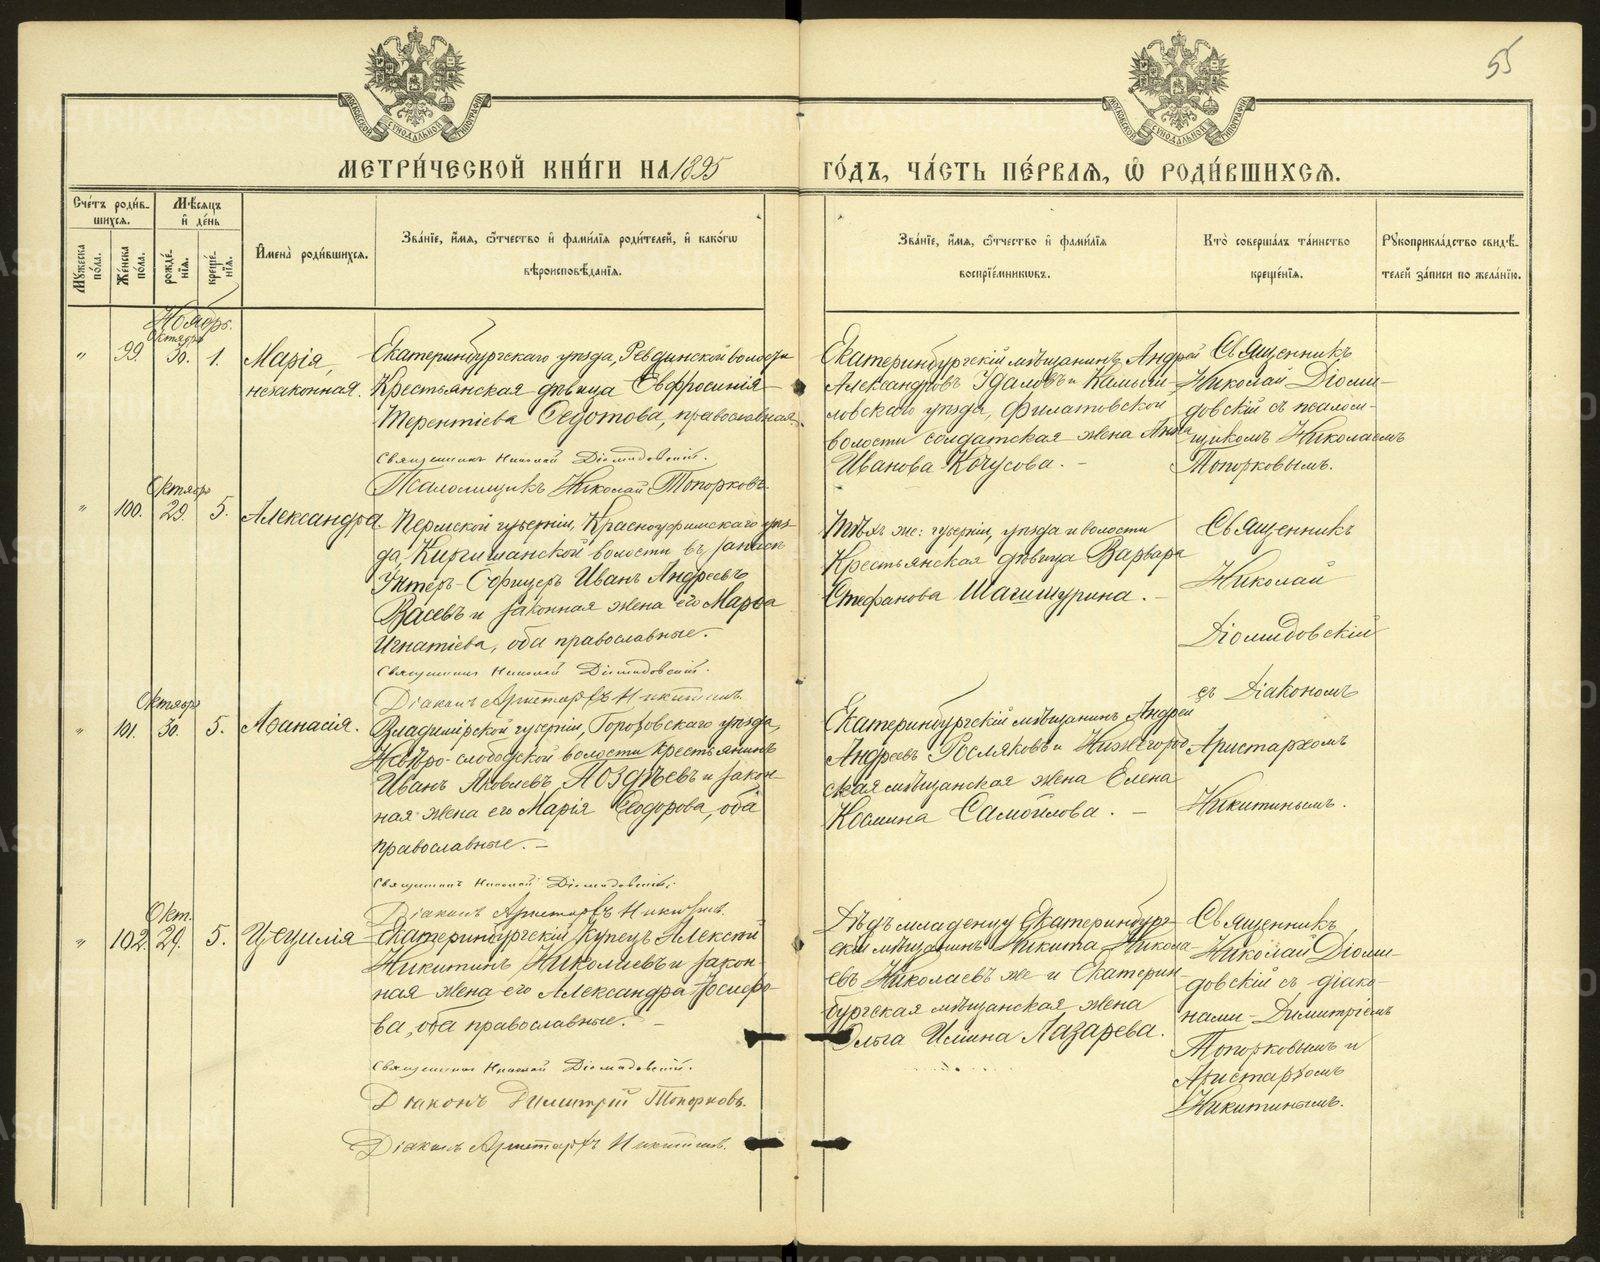 55
МЕТРИ́ЧЕСКОЙ КНИ́ГИ НА 1895 ГО́ДЪ, ЧА́СТЬ ПЕ́РВАѦ, Ѡ РОДИ́ВШИХСѦ.
Сче́тъ роди́вшихсѧ.
Мꙋжеска по́ла.
Же́нска по́ла.
Мѣ́сѧцъ и де́нь
рожде́нїѧ.
креще́нїѧ.
Имена̀ роди́вшихсѧ.
Зва́нїе, и́мѧ, ѻ́тчество и фами́лїѧ роди́телей, и како́гѡ
вѣроисповѣ́данїѧ.
Зва́нїе, и́мѧ, ѻ́тчество и фами́лїѧ
воспрїе́мникѡвъ.
Кто̀ соверша́лъ та́инство
креще́нїѧ.
Рꙋкоприкла́дство свидѣ́телей за́писи по жела́нїю.
Ноябрь.
Октября
" 99. 30. 1. Марія,
незаконная.
Екатеринбургскаго уѣзда, Ревдинской волости
Крестьянская дѣвица Евфросинія
Терентіева Ѳедотова, православная
Священникъ Николай Діомидовскій.
Псаломщикъ Николай Топорковъ.
Екатеринбургскій мѣщанинъ Андрей
Александровъ Удаловъ и Камыш-
ловскаго уѣзда, Филатовской
волости солдатская жена Анна
Иванова Кочусова. -
Священникъ
Николай Діоми-
довскій съ псалом-
щикомъ Николаемъ
Топорковымъ.
Октября
" 100. 29. 5. Александра.
Пермской губерніи, Красноуфимскаго уѣз-
да, Киргишанской волости въ запасѣ
Унтеръ-Офицеръ Иванъ Андреевъ
Васевъ и законная жена его Марѳа
Игнатіева, оба православные.
Священникъ Николай Діомидовскій.
Діаконъ Аристархъ Никитинъ.
Тѣхъ же: губерніи, уѣзда и волости
Крестьянская дѣвица Варвара
Стефанова Шагишурина. -
Священникъ
Николай
Діомидовскій
съ Діакономъ
Аристархомъ
Никитинымъ.
Октября
" 101. 30. 5. Аѳанасія.
Владимірской губерніи, Гороховскаго уѣзда,
слободской волости крестьянинъ
Иванъ Яковлевъ Поздѣевъ и закон-
ная жена его Марія Ѳеодорова, оба
православные. -
Священникъ Николай Діомидовскій.
Діаконъ Аристархъ Никитинъ.
Екатеринбургскій мѣщанинъ Андрей
Андреевъ Росляковъ и Нижегород-
ская мѣщанская жена Елена
Космина Самойлова. -
Окт.
" 102. 29. 5. Цецилія
Екатеринбургскій Купецъ Алексѣй
Никитинъ Николаевъ и закон-
ная жена его Александра Іосифо-
ва, оба православные. -
Священникъ Николай Діомидовскій.
Діаконъ Димитрій Топорковъ.
Діаконъ Аристархъ Никитинъ.
Дѣдъ младенцу Екатеринбург-
скій мѣщанинъ Никита Никола-
евъ Николаевъ же и Екатерин-
бургская мѣщанская жена
Ольга Ильина Лазарева.
Священникъ
Николай Діоми-
довскій съ діако-
нами - Димитріемъ
Топорковымъ и
Аристархомъ
Никитинымъ.